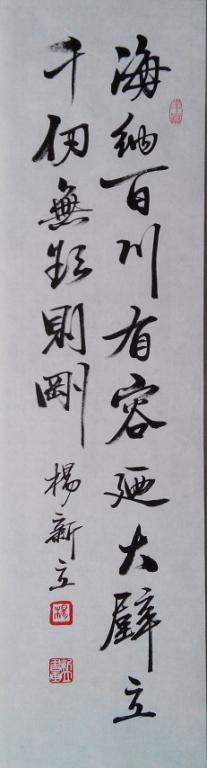 海納百川有容廼大壁立
千仞無欲則剛
楊新立